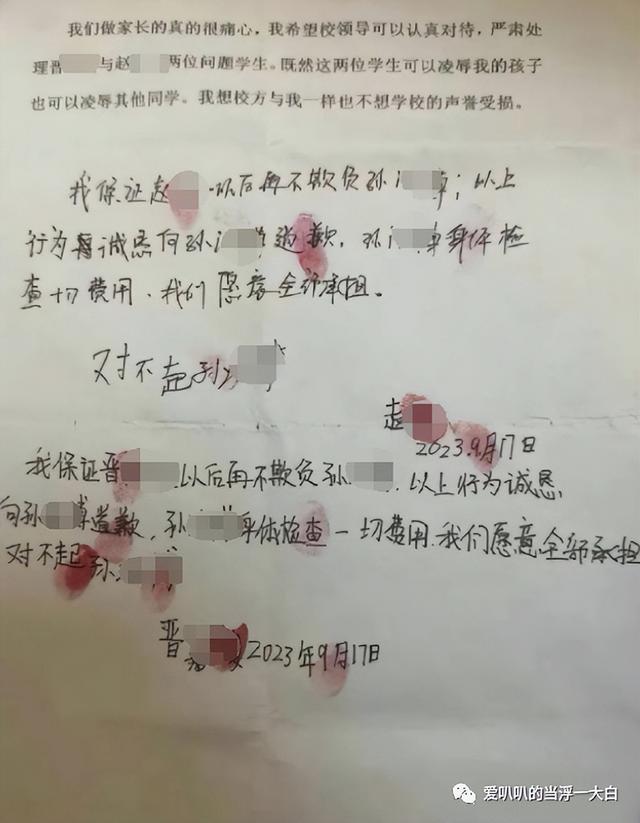 我们做家长的真的很痛心，我希望校领导可以认真对待，严肃处
理晋 与赵 两位问题学生。既然这两位学生可以凌辱我的孩子
也可以凌辱其他同学。我想校方与我一样也不想学校的声誉受损。
我保证赵 以后再不欺负孙 ；以上
行为 诚恳向孙 道歉，孙 身体检
查一切费用、我们愿意全部承担。
对不起孙
赵
2023.9月17日
我保证晋 以后再不欺负孙 ，以上行为诚恳
向孙 道歉，孙 身体检查一切费用、我们愿意全部承担
对不起孙
晋 2023年9月17日
爱叭叭的当浮一大白